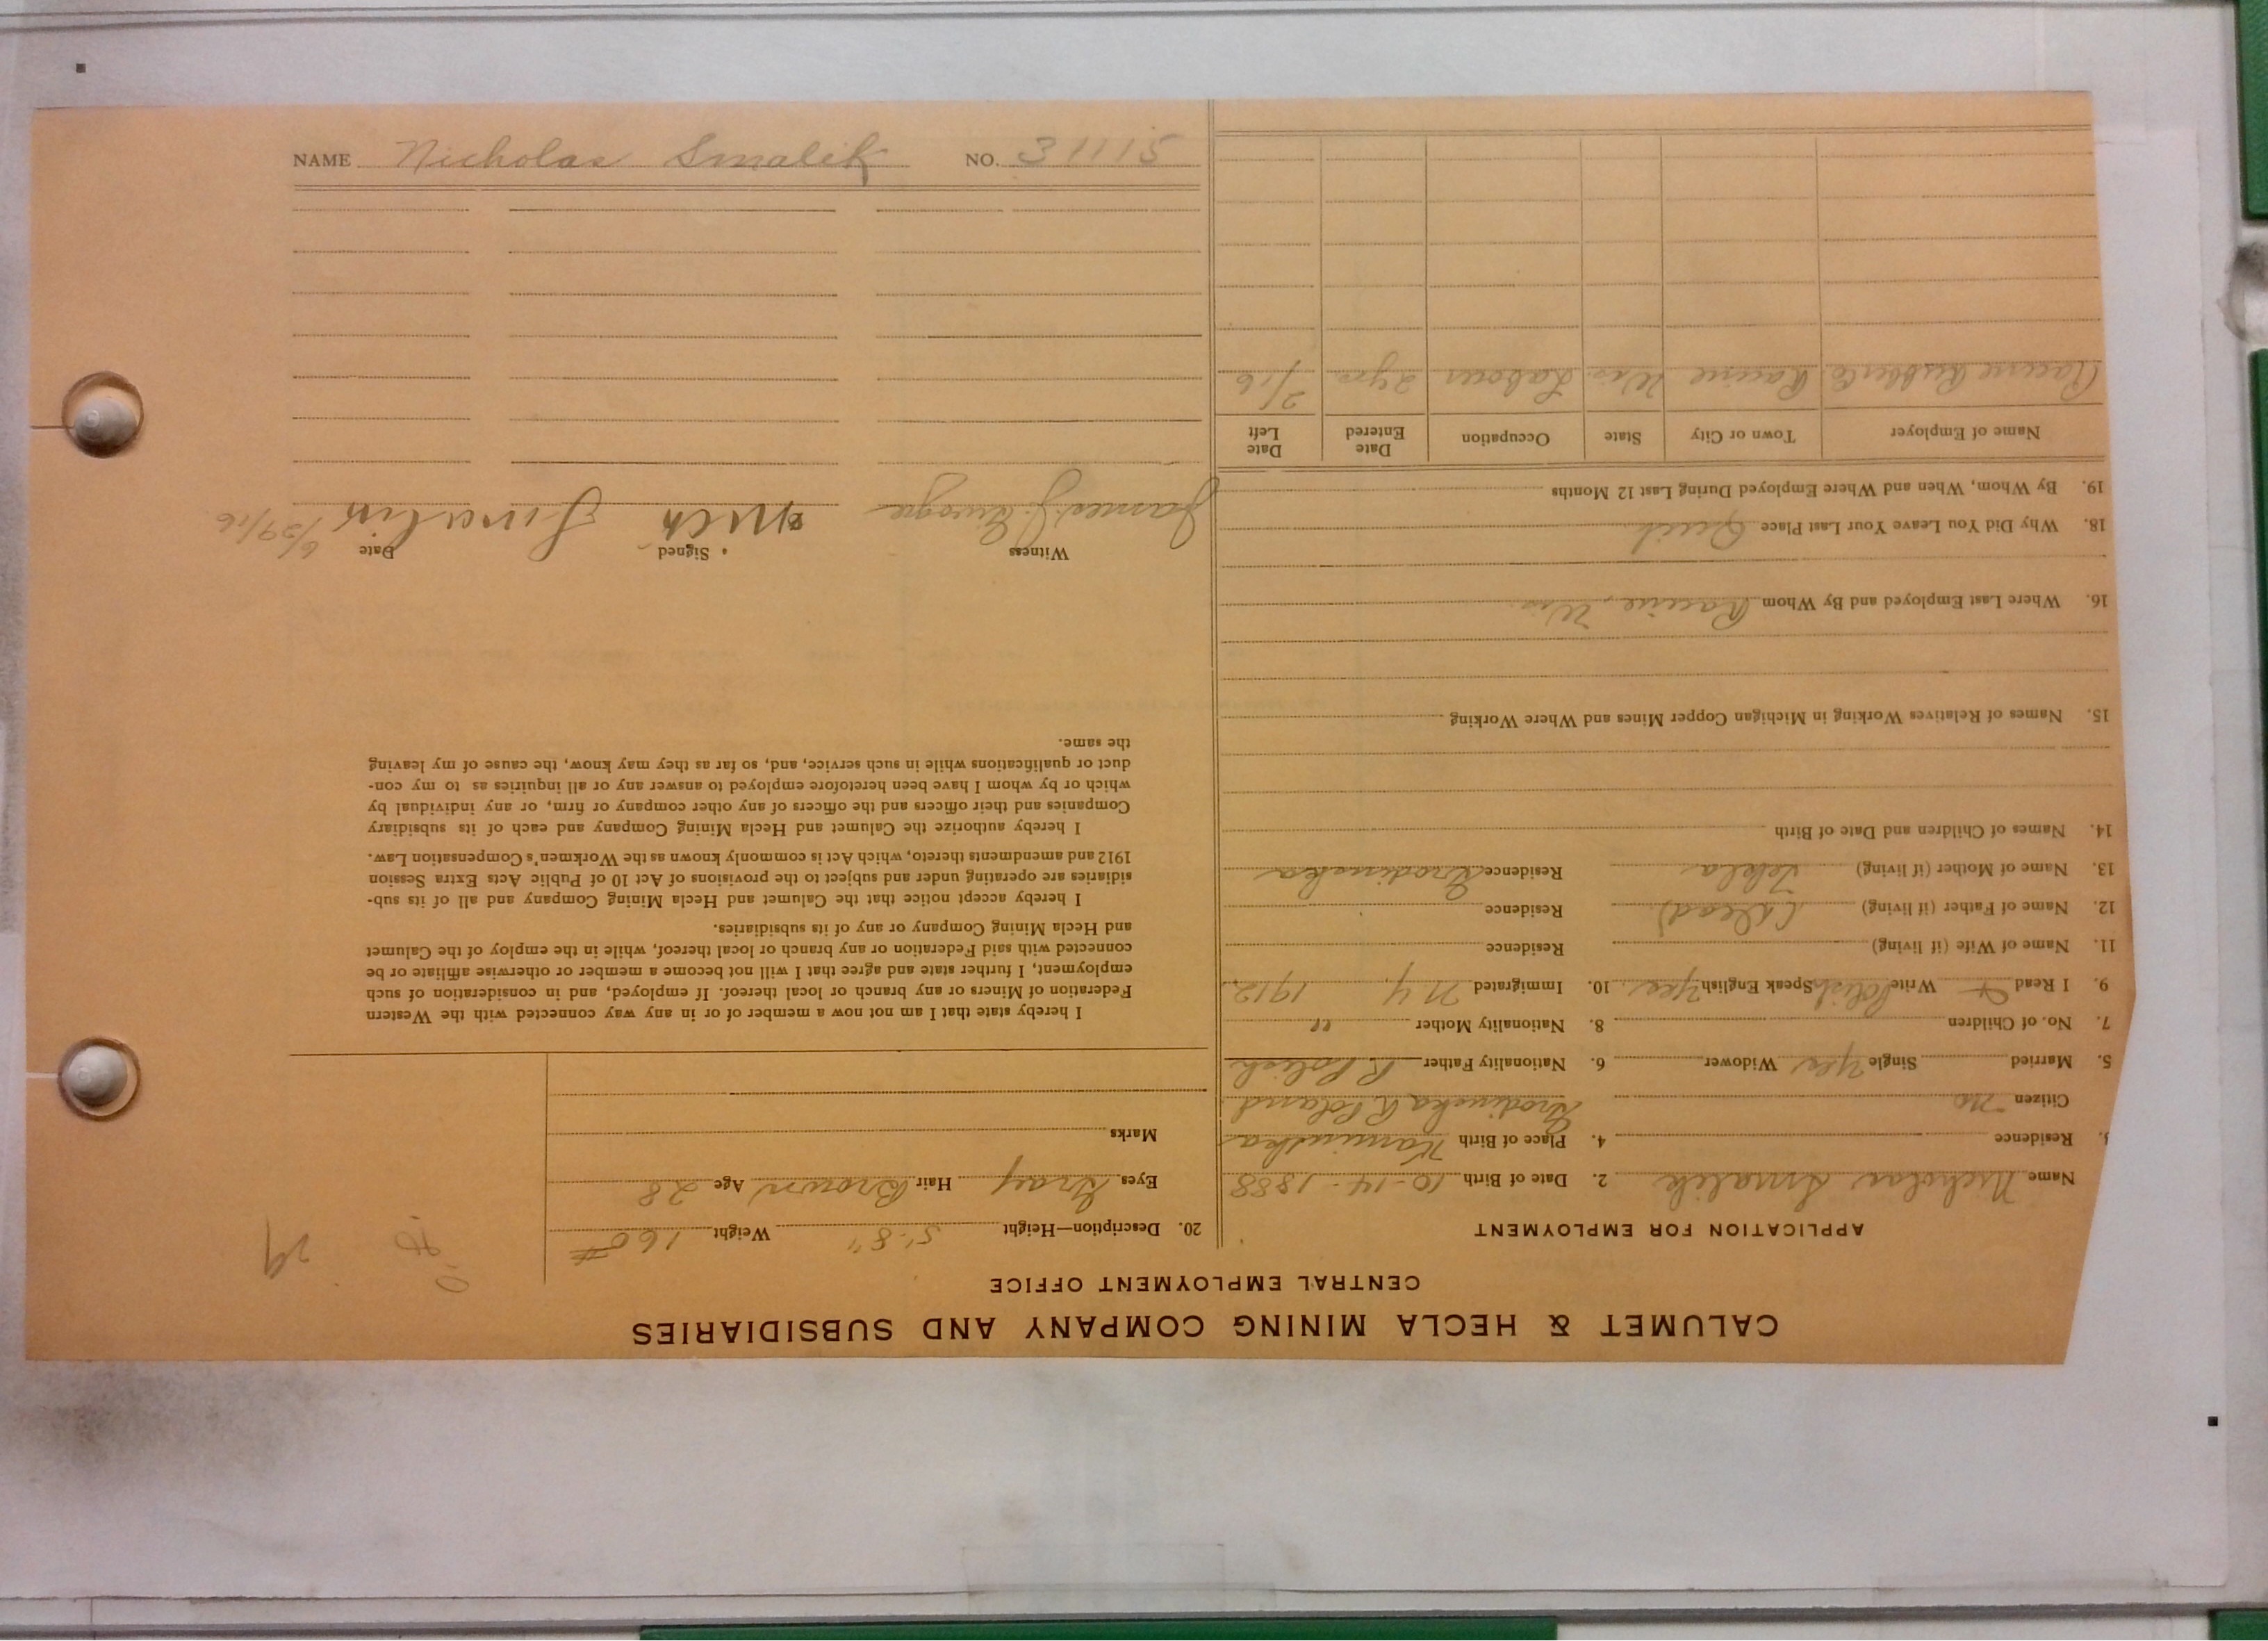 CALUMET & HECLA MINING COMPANY AND SUBSIDIARIES
CENTRAL EMPLOYMENT OFFICE
APPLICATION FOR EMPLOYMENT
Name Nicholas Smalik 2. Date of Birth 10-14-1888
3. Residence 4. Place of Birth Kaminska
Citizen no Grodinska R Poland
5. Married Single Yes Widower 6. Nationality Father R Polish
7. No. of Children 8. Nationality Mother "
9. I Read Write Polish Speak English Yes 10. Immigrated N Y, 1912
11. Name of Wife (if living) Residence
12. Name of Father (if living) (Dead) Residence
13. Name of Mother (if living) Tekla Residence Grodinska
14. Names of Children and Date of Birth
15. Names of Relatives Working in Michigan Copper Mines and Where Working
16. Where Last Employed and By Whom Racine, Wis
18. Why Did You Leave Your Last Place Quit
19. By Whom, When and Where Employed During Last 12 Months
Name of Employer Town or City State Occupation Date Entered Date Left
Racine Rubber Co Racine Wis Laborer 2 yrs 2/16
20. Description—Height 5'-8" Weight 160#
Eyes Gray Hair Brown Age 28
Marks
I hereby state that I am not now a member of or in any way connected with the Western
Federation of Miners or any branch or local thereof. If employed, and in consideration of such
employment, I further state and agree that I will not become a member or otherwise affiliate or be
connected with said Federation or any branch or local thereof, while in the employ of the Calumet
and Hecla Mining Company or any of its subsidiaries.
I hereby accept notice that the Calumet and Hecla Mining Company and all of its sub-
sidiaries are operating under and subject to the provisions of Act 10 of Public Acts Extra Session
1912 and amendments thereto, which Act is commonly known as the Workmen's Compensation Law.
I hereby authorize the Calumet and Hecla Mining Company and each of its subsidiary
Companies and their officers and the officers of any other company or firm, or any individual by
which or by whom I have been heretofore employed to answer any or all inquiries as to my con-
duct or qualifications while in such service, and, so far as they may know, the cause of my leaving
the same.
Witness Signed Date
James J. 6/29/16
NAME Nicholas Smalik NO. 31115